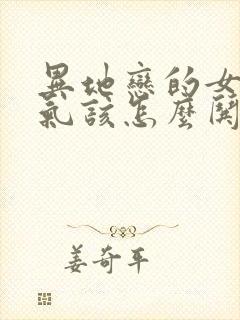 異地戀的女
氣該怎麼鬨
姜奇平